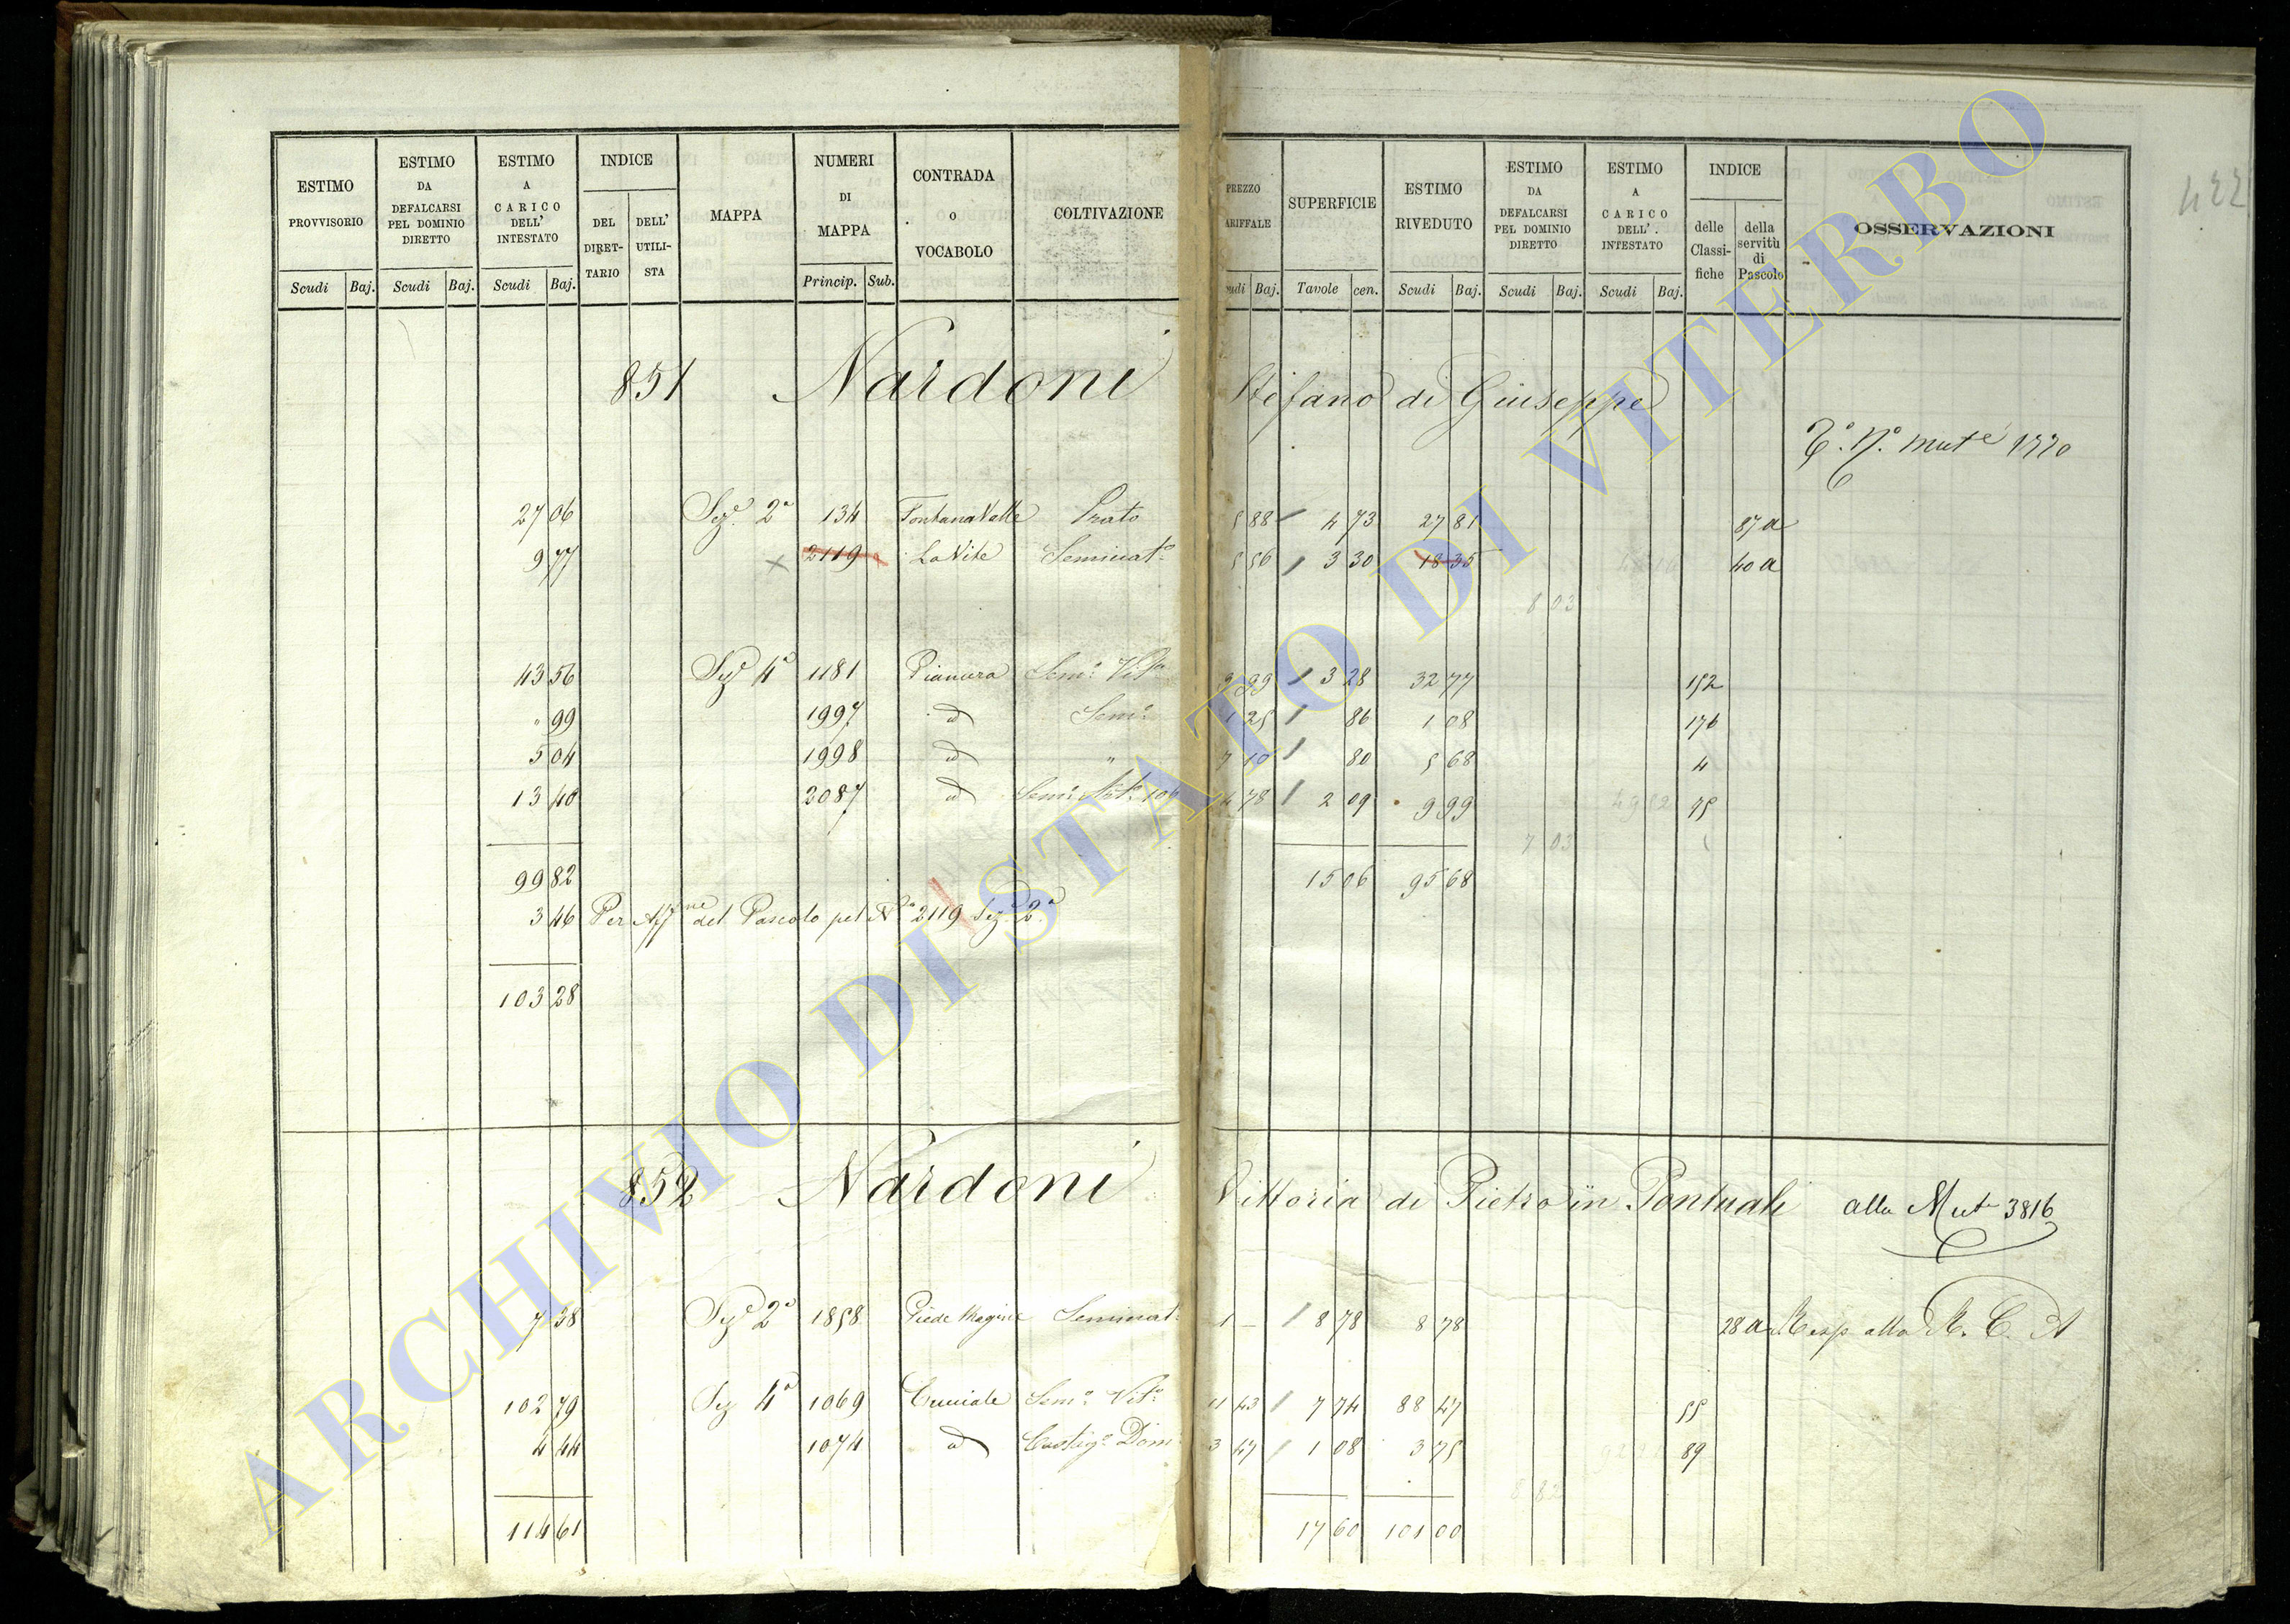 ESTIMO PROVVISORIO
Scudi Baj.
ESTIMO DA DEFALCARSI PEL DOMINIO DIRETTO
Scudi Baj.
ESTIMO A CARICO DELL' INTESTATO
Scudi Baj.
INDICE
DEL DIRET-TARIO
DELL' UTILI-STA
MAPPA
NUMERI DI MAPPA
Princip. Sub.
CONTRADA o VOCABOLO
COLTIVAZIONE
PREZZO ARIFFALE
udi Baj.
SUPERFICIE
Tavole cen.
ESTIMO RIVEDUTO
Scudi Baj.
ESTIMO DA DEFALCARSI PEL DOMINIO DIRETTO
Scudi Baj.
ESTIMO A CARICO DELL' INTESTATO
Scudi Baj.
INDICE
delle Classi-fiche
della servitù di Pascolo
OSSERVAZIONI
422
851 Nardoni Stefano di Giuseppe
27 06 Sez. 2a 134 Fontana Valle Prato 5 88 4 73 27 81 87 a
9 77 x 2119 La Vite Seminato 5 56 3 30 18 35 40 a
8 03
43 56 Sez 4a 1181 Pianura Semo Vito 9 99 3 28 32 77 152
" 99 1997 d Semo 1 25 86 1 08 176
5 04 1998 d " 7 10 80 5 68 4
13 40 2087 d 4 78 2 09 9 99 75
7 03
99 82 15 06 95 68
3 46 Per Affne del Pascolo pel No 2119 Sez 2a
103 28
852 Nardoni Vittoria di Pietro in Pontuali alla Muta 3816
7 38 Sez 2a 1858 Piede Regine Seminat. 1 – 8 78 8 78 28 a Resp alla R. C. A
102 79 Sez 4a 1069 Cuniale Semo Vito 11 43 7 74 88 47 55
4 44 1074 d Castigo Dom 3 47 1 08 3 75 89
8 82
114 61 17 60 101 00
ARCHIVIO DI STATO DI VITERBO